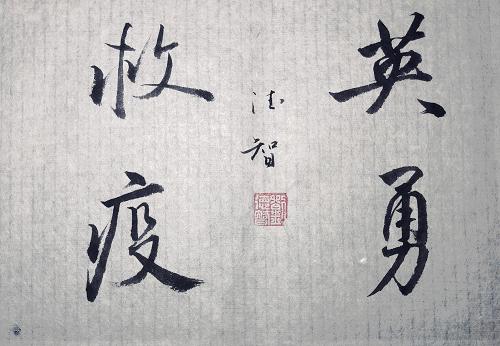 英勇
救疫
德智